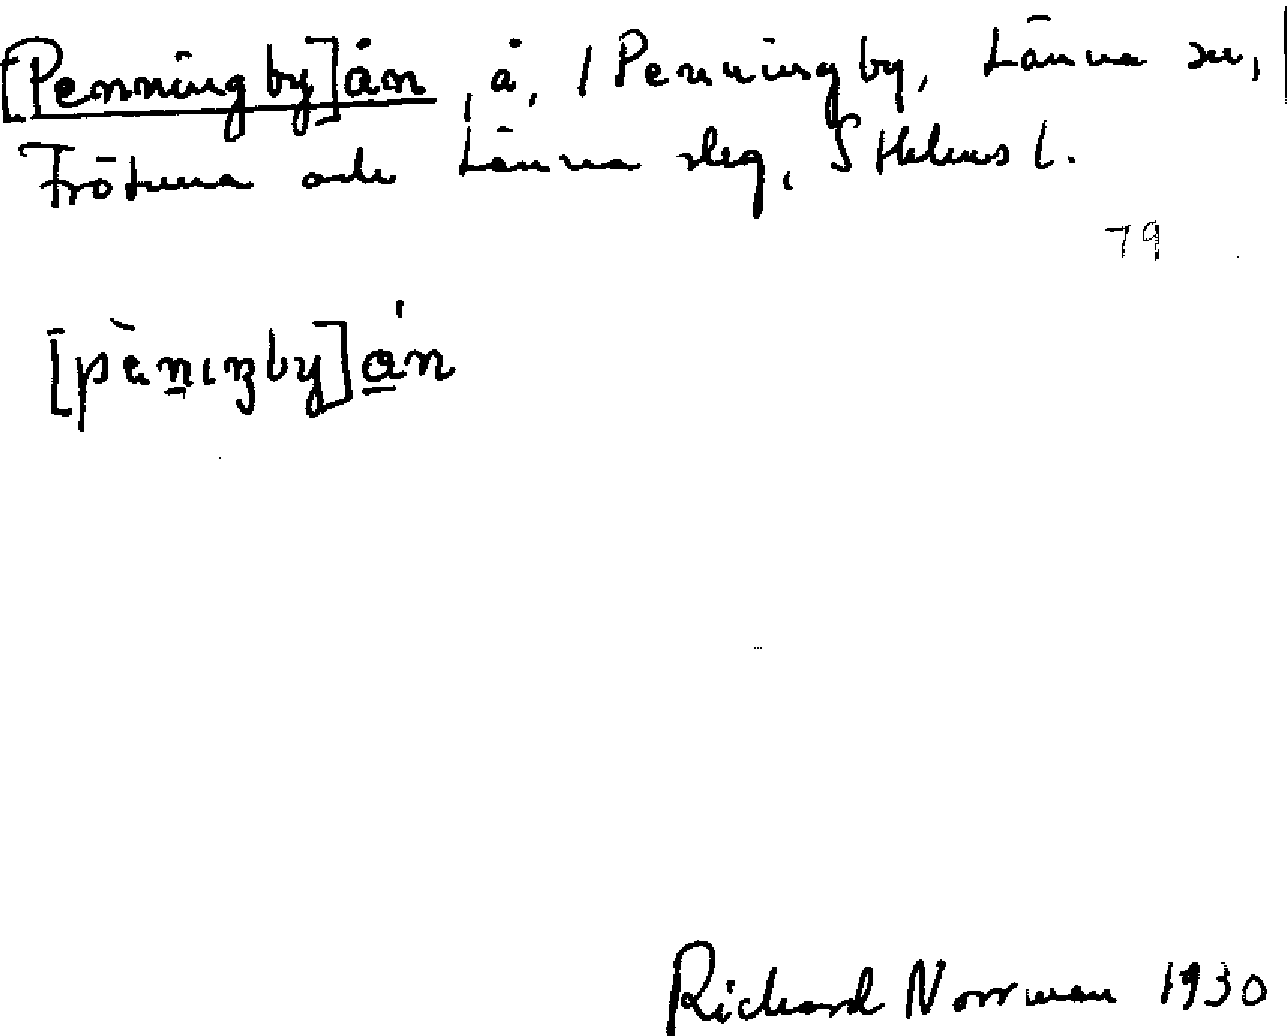 [Penningby]ån, å, / Penningby, Länna sn, |
Frötuna och Länna slg, Sthlms l.
79
[pèniŋby]án
Richard Norrman 1930